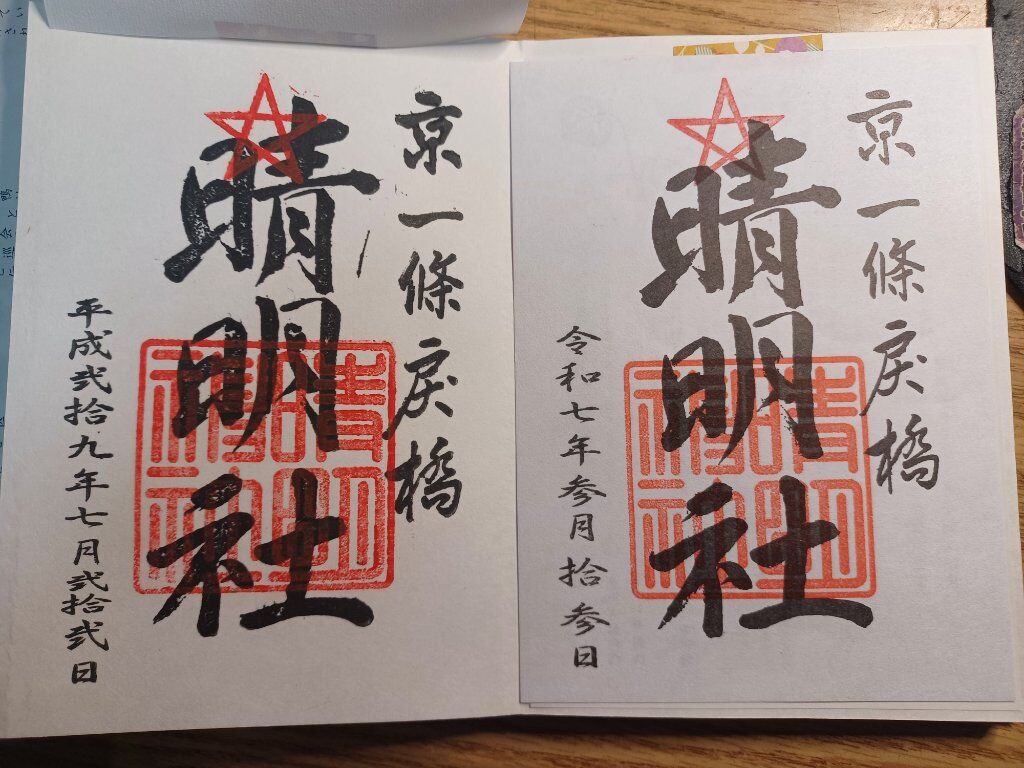 京一條戻橋
晴明社
令和七年参月拾参日
京一條戻橋
晴明社
平成弐拾九年七月弐拾弐日